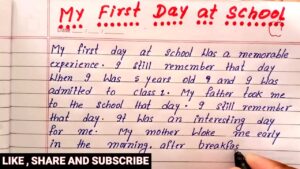 My First Day at School
My first day at school was a memorable
experience. I still remember that day
When I was 5 years old I and I was
admitted to class 1. My father took me
to the school that day. I still remember
that day. It was an interesting day
for me. My mother woke me early
in the morning. after breakfas
LIKE , SHARE AND SUBSCRIBE